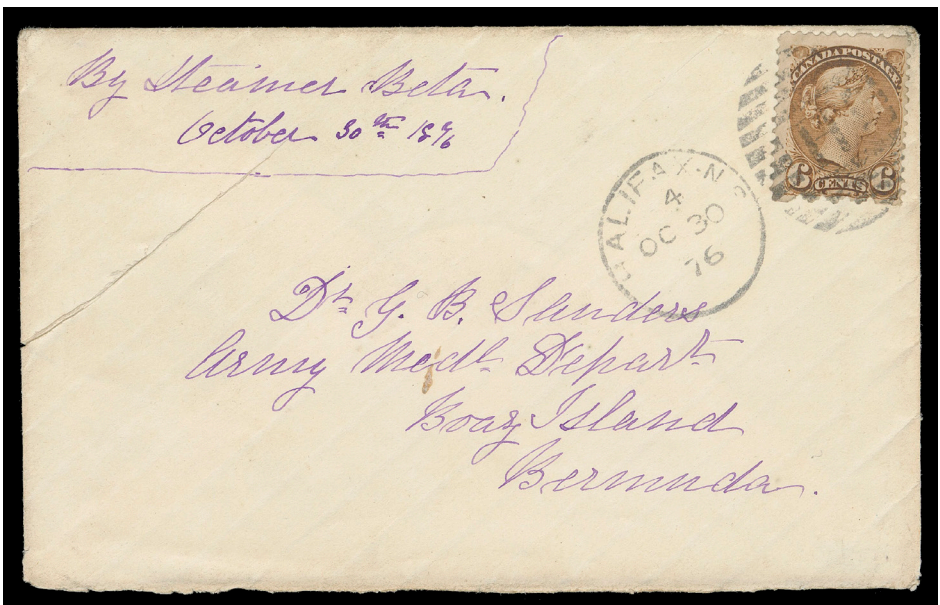 By Steamer Beta.
October 30th 1876
CANADA POSTAGE
6 CENTS 6
HALIFAX·N.S
4
OC 30
76
Dr. G. B. Sanders
Army Medl. Depart.
Boaz Island
Bermuda.